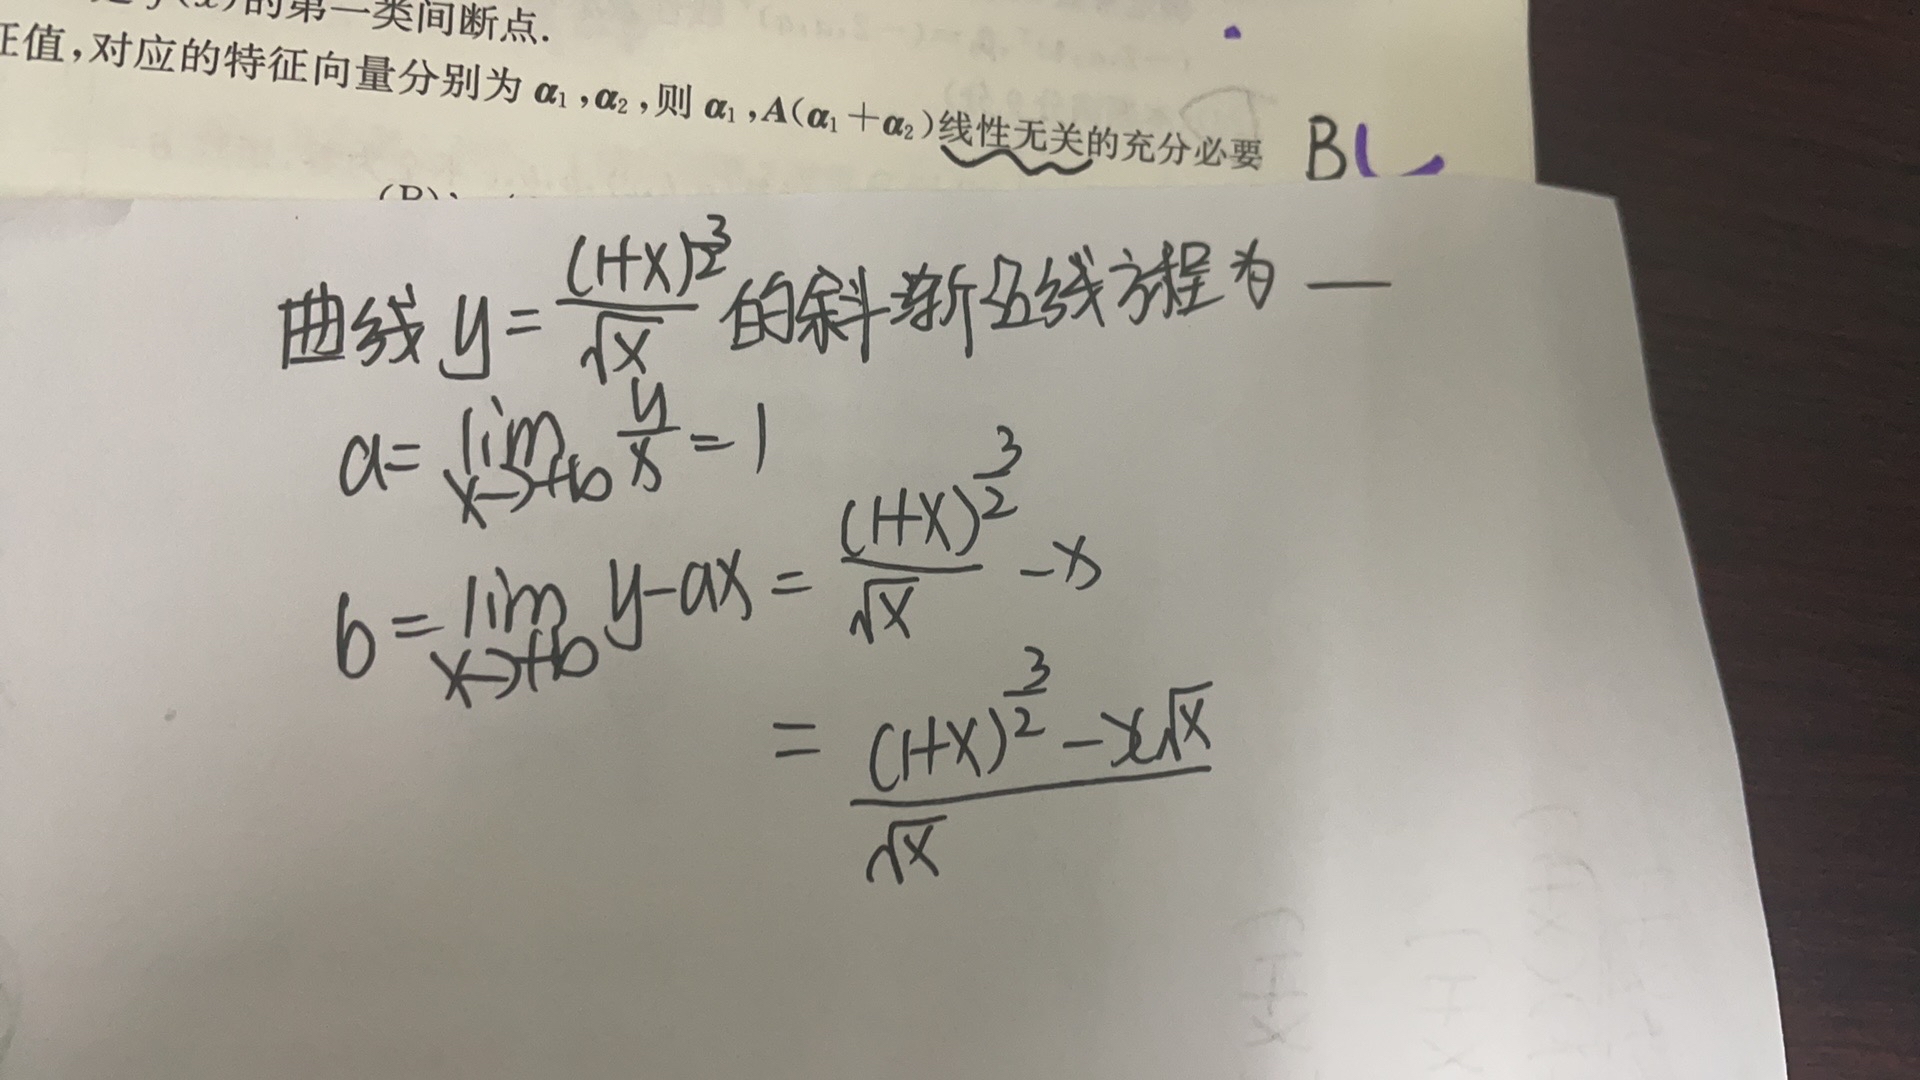 f(x)的第一类间断点.
征值,对应的特征向量分别为 α₁,α₂,则 α₁,A(α₁+α₂)线性无关的充分必要
B
(B)
曲线 y = (1+x)^(3/2) / √x 的斜渐近线方程为 —
a = lim x→+∞ y/x = 1
b = lim x→+∞ y-ax = (1+x)^(3/2) / √x - x
= ((1+x)^(3/2) - x√x) / √x